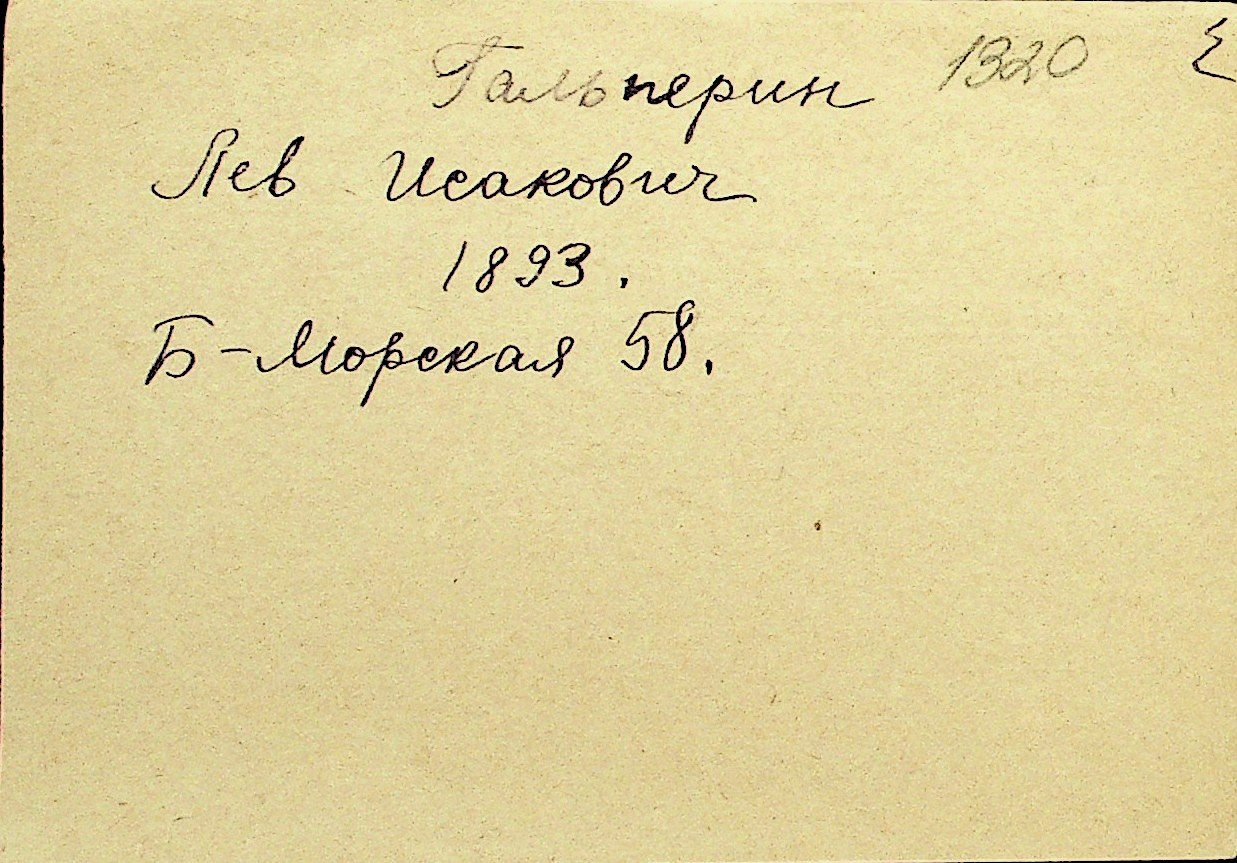 Гальперин 1320
Лев Исакович
1893.
Б-Морская 58.